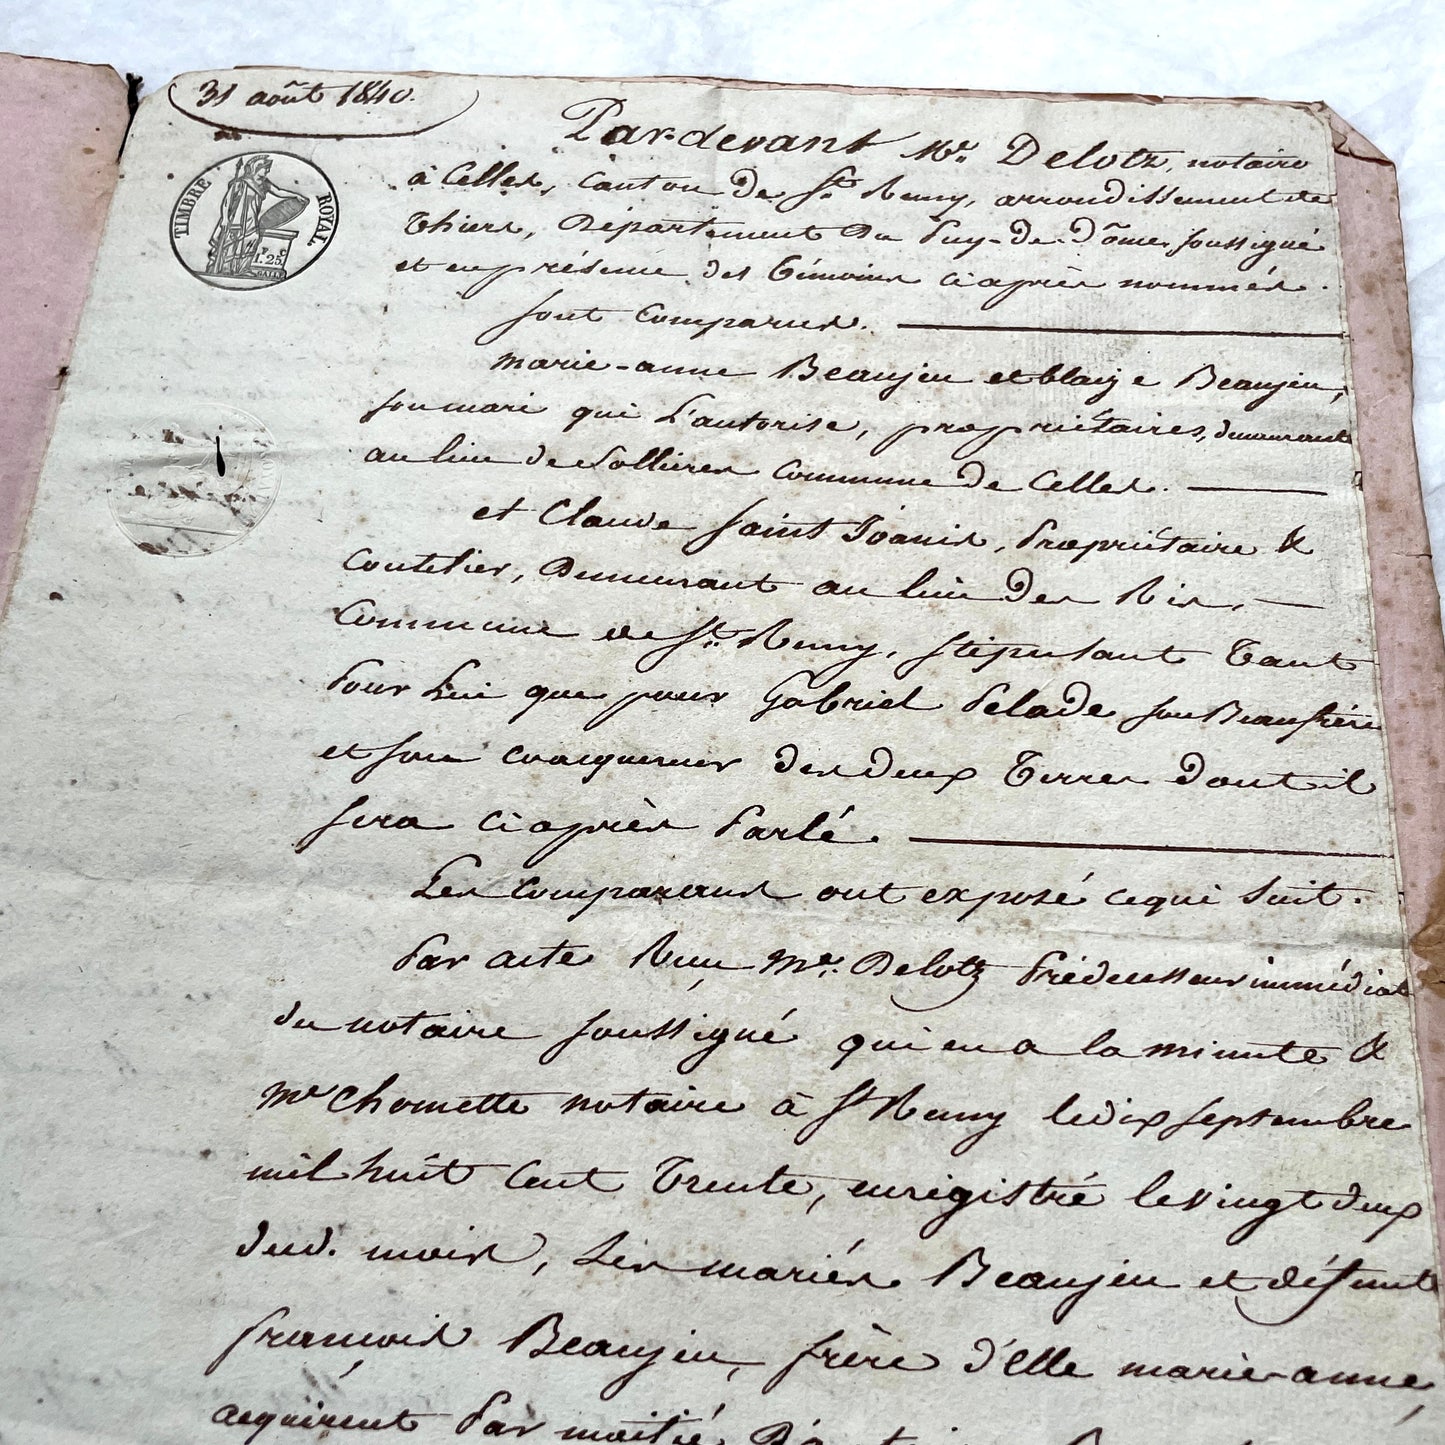 31 août 1840.
TIMBRE ROYAL.
1F. 25C
Par-devant Me. Delotz, notaire
à Celles, canton de St. Remy, arrondissement de
Thiers, Département Du Puy-de-Dôme, soussigné
et en présence des témoins ci après nommés.
sont comparus.
marie-anne Beaujeu et blaize Beaujeu,
son mari qui l'autorise, propriétaires, demeurant
au lieu de Sollieres commune de Celles.
et Claude Saint Joanis, Propriétaire &
Coutelier, Demeurant au lieu Des Ris,
Commune de St. Remy, stipulant tant
Pour Lui que pour Gabriel Pelade son Beaufrère
et son coacquereur des deux terres dont il
sera ci après Parlé.
Les comparans ont exposé ce qui suit.
Par acte Reçu Me. Delotz Prédecesseur immédiat
du notaire soussigné qui en a la minute &
Me Chomette notaire à St Remy le dix septembre
mil huit cent trente, enrégistré le vingt deux
dud. mois, Les mariés Beaujeu et défunt
françois Beaujeu, frère d'elle marie-anne,
acquirent Par moitié